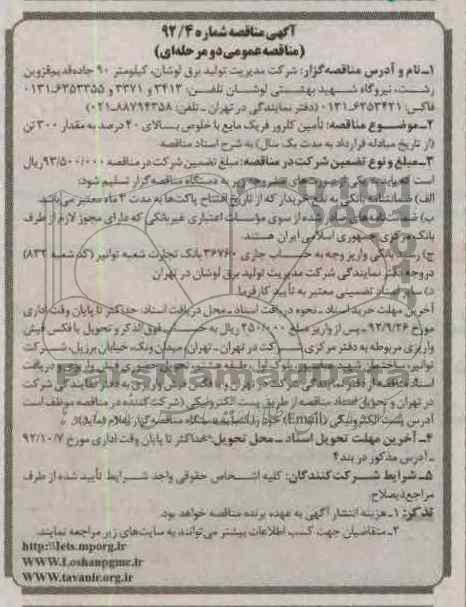 آگهی مناقصه شماره ۹۲/۴
(مناقصه عمومی دو مرحله‌ای)
۱ـ نام و آدرس مناقصه‌گزار: شرکت مدیریت تولید برق لوشان، کیلومتر ۹۰ جاده قدیم قزوین
رشت، نیروگاه شهید بهشتی لوشان تلفن: ۳۴۱۳ و ۳۳۷۱ و ۶۳۵۳۳۵۵-۰۱۳۱
فاکس: ۶۳۵۳۴۲۱-۰۱۳۱ (دفتر نمایندگی در تهران ـ تلفن: ۸۸۷۹۴۳۵۸-۰۲۱)
۲ـ موضوع مناقصه: تأمین کلرور فریک مایع با خلوص بالای ۴۰ درصد به مقدار ۳۰۰ تن
(از تاریخ مبادله قرارداد به مدت یک سال) به شرح اسناد مناقصه
۳ـ مبلغ و نوع تضمین شرکت در مناقصه: مبلغ تضمین شرکت در مناقصه ۹۳/۵۰۰/۰۰۰ ریال
است که باید به یکی از صورت‌های مشروح زیر به دستگاه مناقصه گزار تسلیم شود:
الف) ضمانتنامه بانکی به نفع خریدار که از تاریخ افتتاح پاکت‌ها به مدت ۴ ماه معتبر می‌باشد.
ب) ضمانت‌نامه صادر شده از سوی مؤسسات اعتباری غیربانکی که دارای مجوز لازم از طرف
بانک مرکزی جمهوری اسلامی ایران هستند.
ج) رسید بانکی واریز وجه به حساب جاری ۳۶۷۶۰ بانک تجارت شعبه توانیر (کد شعبه ۸۳۲)
در وجه دفتر نمایندگی شرکت مدیریت تولید برق لوشان در تهران
د) سایر اسناد تضمینی معتبر به تأیید کارفرما
آخرین مهلت خرید اسناد ـ نحوه دریافت اسناد ـ محل دریافت اسناد: حداکثر تا پایان وقت اداری
مورخ ۹۲/۹/۲۶ ـ پس از واریز مبلغ ۲۵۰/۰۰۰ ریال به حساب فوق‌الذکر و تحویل یا فکس فیش
واریزی مربوطه به دفتر مرکزی شرکت در تهران ـ تهران، میدان ونک، خیابان برزیل، شرکت
توانیر، ساختمان شهید بلوک اول، طبقه
اسناد مناقصه از دفتر نمایندگی شرکت در تهران، و یا فکس فیش واریزی به دفتر نمایندگی شرکت
در تهران و تحویل اسناد مناقصه از طریق پست الکترونیکی (شرکت‌کننده در مناقصه موظف است
آدرس پست الکترونیکی (Email) خود را دستگاه مناقصه گزار اعلام نماید).
۴ـ آخرین مهلت تحویل اسناد ـ محل تحویل: حداکثر تا پایان وقت اداری مورخ ۹۲/۱۰/۷
ـ آدرس مذکور در بند ۴
۵ـ شرایط شرکت‌کنندگان: کلیه اشخاص حقوقی واجد شرایط تأیید شده از طرف
مراجع ذیصلاح
تذکر: ۱ـ هزینه انتشار آگهی به عهده برنده مناقصه خواهد بود.
۲ـ متقاضیان جهت کسب اطلاعات بیشتر می‌توانند به سایت‌های زیر مراجعه نمایند.
http:\\Iets.mporg.ir
WWW.Loshanpgmc.ir
WWW.tavanir.org.ir